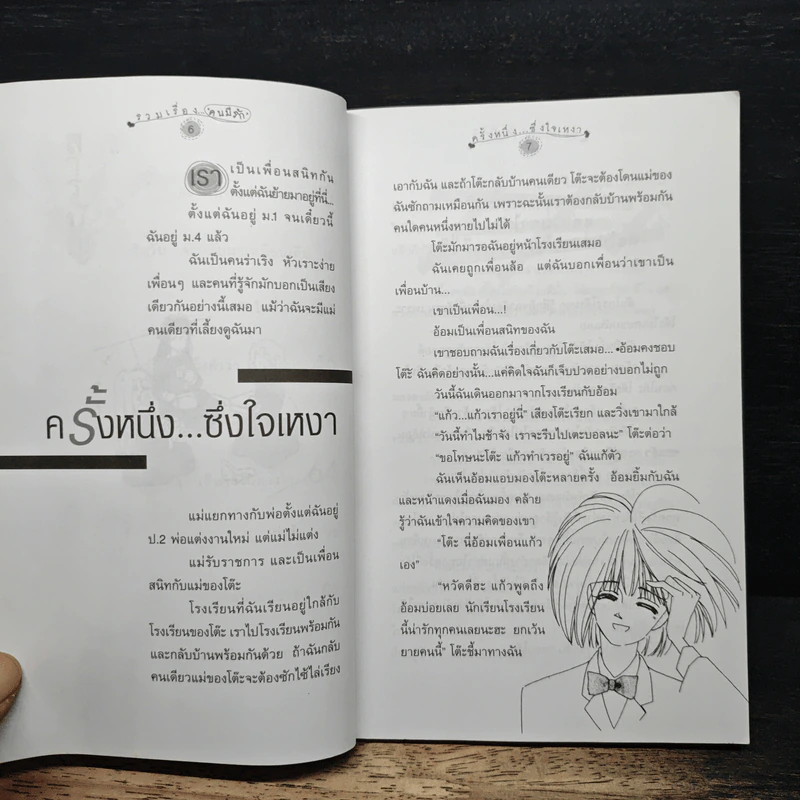 รวมเรื่อง...คนมีรัก
6
เรา เป็นเพื่อนสนิทกัน
ตั้งแต่ฉันย้ายมาอยู่ที่นี่...
ตั้งแต่ฉันอยู่ ม.1 จนเดี๋ยวนี้
ฉันอยู่ ม.4 แล้ว
ฉันเป็นคนร่าเริง หัวเราะง่าย
เพื่อนๆ และคนที่รู้จักมักบอกเป็นเสียง
เดียวกันอย่างนี้เสมอ แม้ว่าฉันจะมีแม่
คนเดียวที่เลี้ยงดูฉันมา
ครั้งหนึ่ง...ซึ่งใจเหงา
แม่แยกทางกับพ่อตั้งแต่ฉันอยู่
ป.2 พ่อแต่งงานใหม่ แต่แม่ไม่แต่ง
แม่รับราชการ และเป็นเพื่อน
สนิทกับแม่ของโต๊ะ
โรงเรียนที่ฉันเรียนอยู่ใกล้กับ
โรงเรียนของโต๊ะ เราไปโรงเรียนพร้อมกัน
และกลับบ้านพร้อมกันด้วย ถ้าฉันกลับ
คนเดียวแม่ของโต๊ะจะต้องซักไซ้ไล่เรียง
ครั้งหนึ่ง...ซึ่งใจเหงา
7
เอากับฉัน และถ้าโต๊ะกลับบ้านคนเดียว โต๊ะจะต้องโดนแม่ของ
ฉันซักถามเหมือนกัน เพราะฉะนั้นเราต้องกลับบ้านพร้อมกัน
คนใดคนหนึ่งหายไปไม่ได้
โต๊ะมักมารอฉันอยู่หน้าโรงเรียนเสมอ
ฉันเคยถูกเพื่อนล้อ แต่ฉันบอกเพื่อนว่าเขาเป็น
เพื่อนบ้าน...
เขาเป็นเพื่อน...!
อ้อมเป็นเพื่อนสนิทของฉัน
เขาชอบถามฉันเรื่องเกี่ยวกับโต๊ะเสมอ... อ้อมคงชอบ
โต๊ะ ฉันคิดอย่างนั้น...แค่คิดใจฉันก็เจ็บปวดอย่างบอกไม่ถูก
วันนี้ฉันเดินออกมาจากโรงเรียนกับอ้อม
“แก้ว...แก้วเราอยู่นี่” เสียงโต๊ะเรียก และวิ่งเขามาใกล้
“วันนี้ทำไมช้าจัง เราจะรีบไปเตะบอลนะ” โต๊ะต่อว่า
“ขอโทษนะโต๊ะ แก้วทำเวรอยู่” ฉันแก้ตัว
ฉันเห็นอ้อมแอบมองโต๊ะหลายครั้ง อ้อมยิ้มกับฉัน
และหน้าแดงเมื่อฉันมอง คล้าย
รู้ว่าฉันเข้าใจความคิดของเขา
“โต๊ะ นี่อ้อมเพื่อนแก้ว
เอง”
“หวัดดีฮะ แก้วพูดถึง
อ้อมบ่อยเลย นักเรียนโรงเรียน
นี้น่ารักทุกคนเลยนะฮะ ยกเว้น
ยายคนนี้” โต๊ะชี้มาทางฉัน